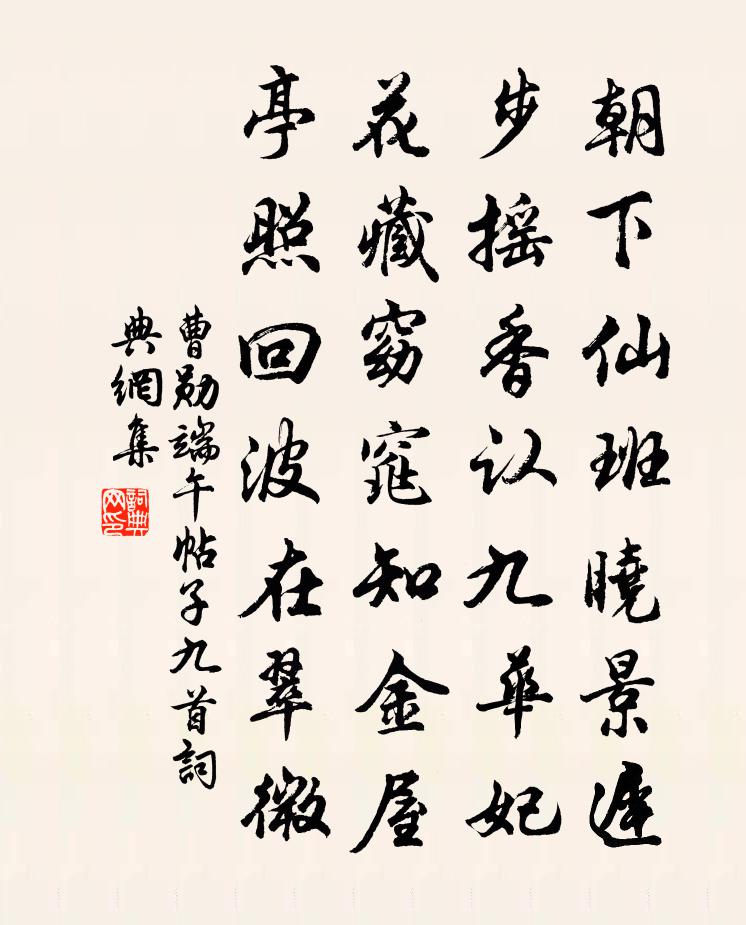 朝下仙班曉景遲
步摇香认九華妃
花藏窈窕知金屋
亭照回波在翠微
曹勋端午帖子九首詞
典網集
詞典
网印